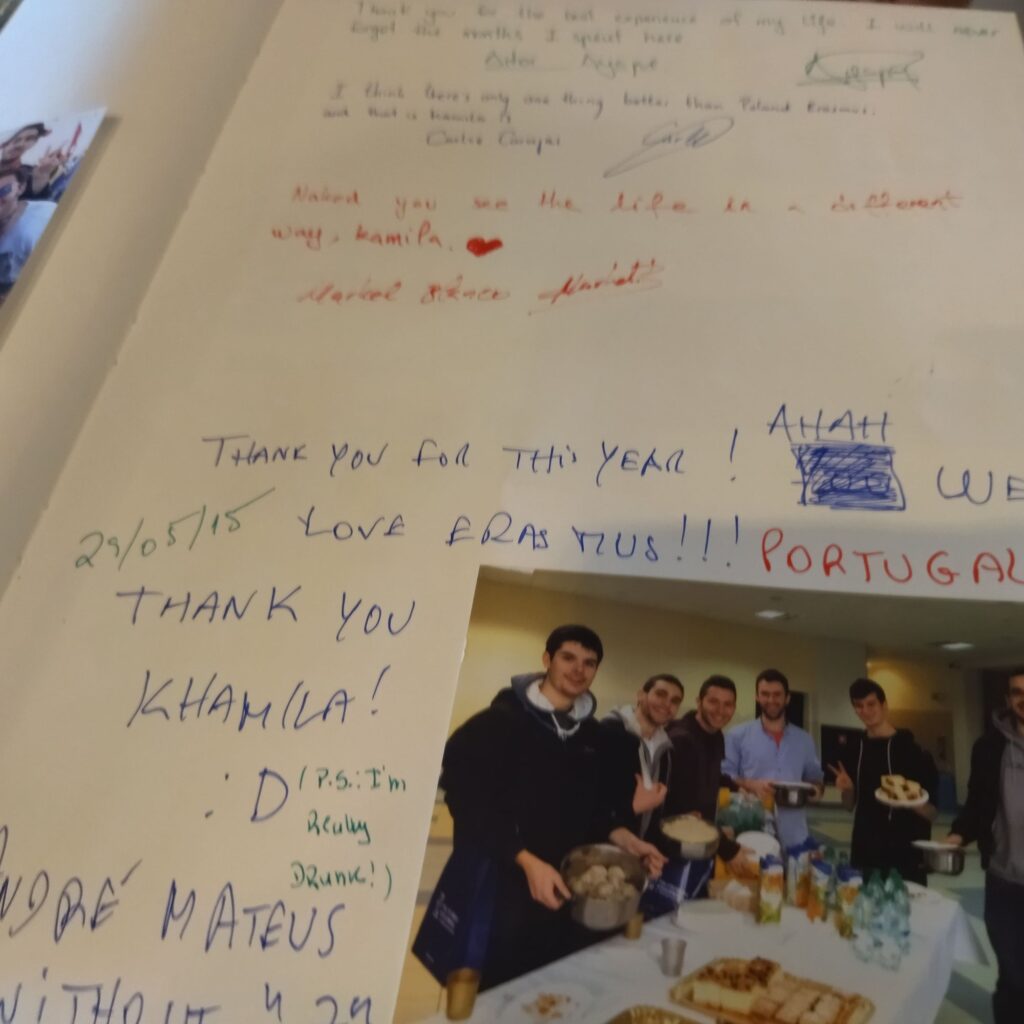 Thank you for the best experience of my life. I will never
forget the months I spent here
Aitor
I think there's only one thing better than Poland Erasmus.
and that is Kamila
Carlos
Naked you see the life in a different
way, Kamila. ♥
Markel
THANK YOU FOR THIS YEAR! AHAH WE
29/05/15 LOVE ERASMUS!!! PORTUGAL
THANK YOU
KHAMILA!
:D (P.S.: I'm
Really
Drunk!)
ANDRÉ MATEUS
WITHOUT